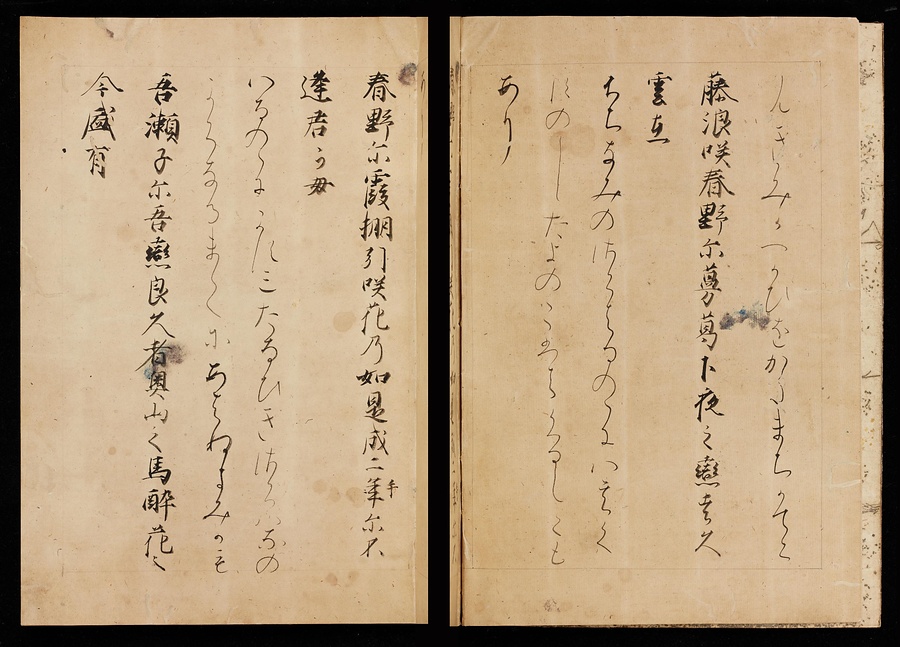 んきみかつかひをかたまちかてら
藤浪咲春野尓蔓葛下夜之戀者久
雲在
ちなみのさくはるのゝにはふく
すのしたよのこひはひさしくも
あり
春野尓霞棚引咲花乃如是成二手尓不
逢君可母
はるのゝにかすみたなひきさくはなの
かくなるまてにあはぬきみかも
吾瀬子尓吾戀良久者奥山之馬酔花之
今盛有